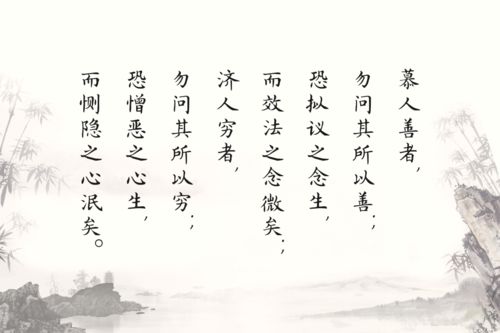 慕人善者，
勿问其所以善；
恐拟议之念生，
而效法之念微矣；
济人穷者，
勿问其所以穷；
恐憎恶之心生，
而恻隐之心泯矣。